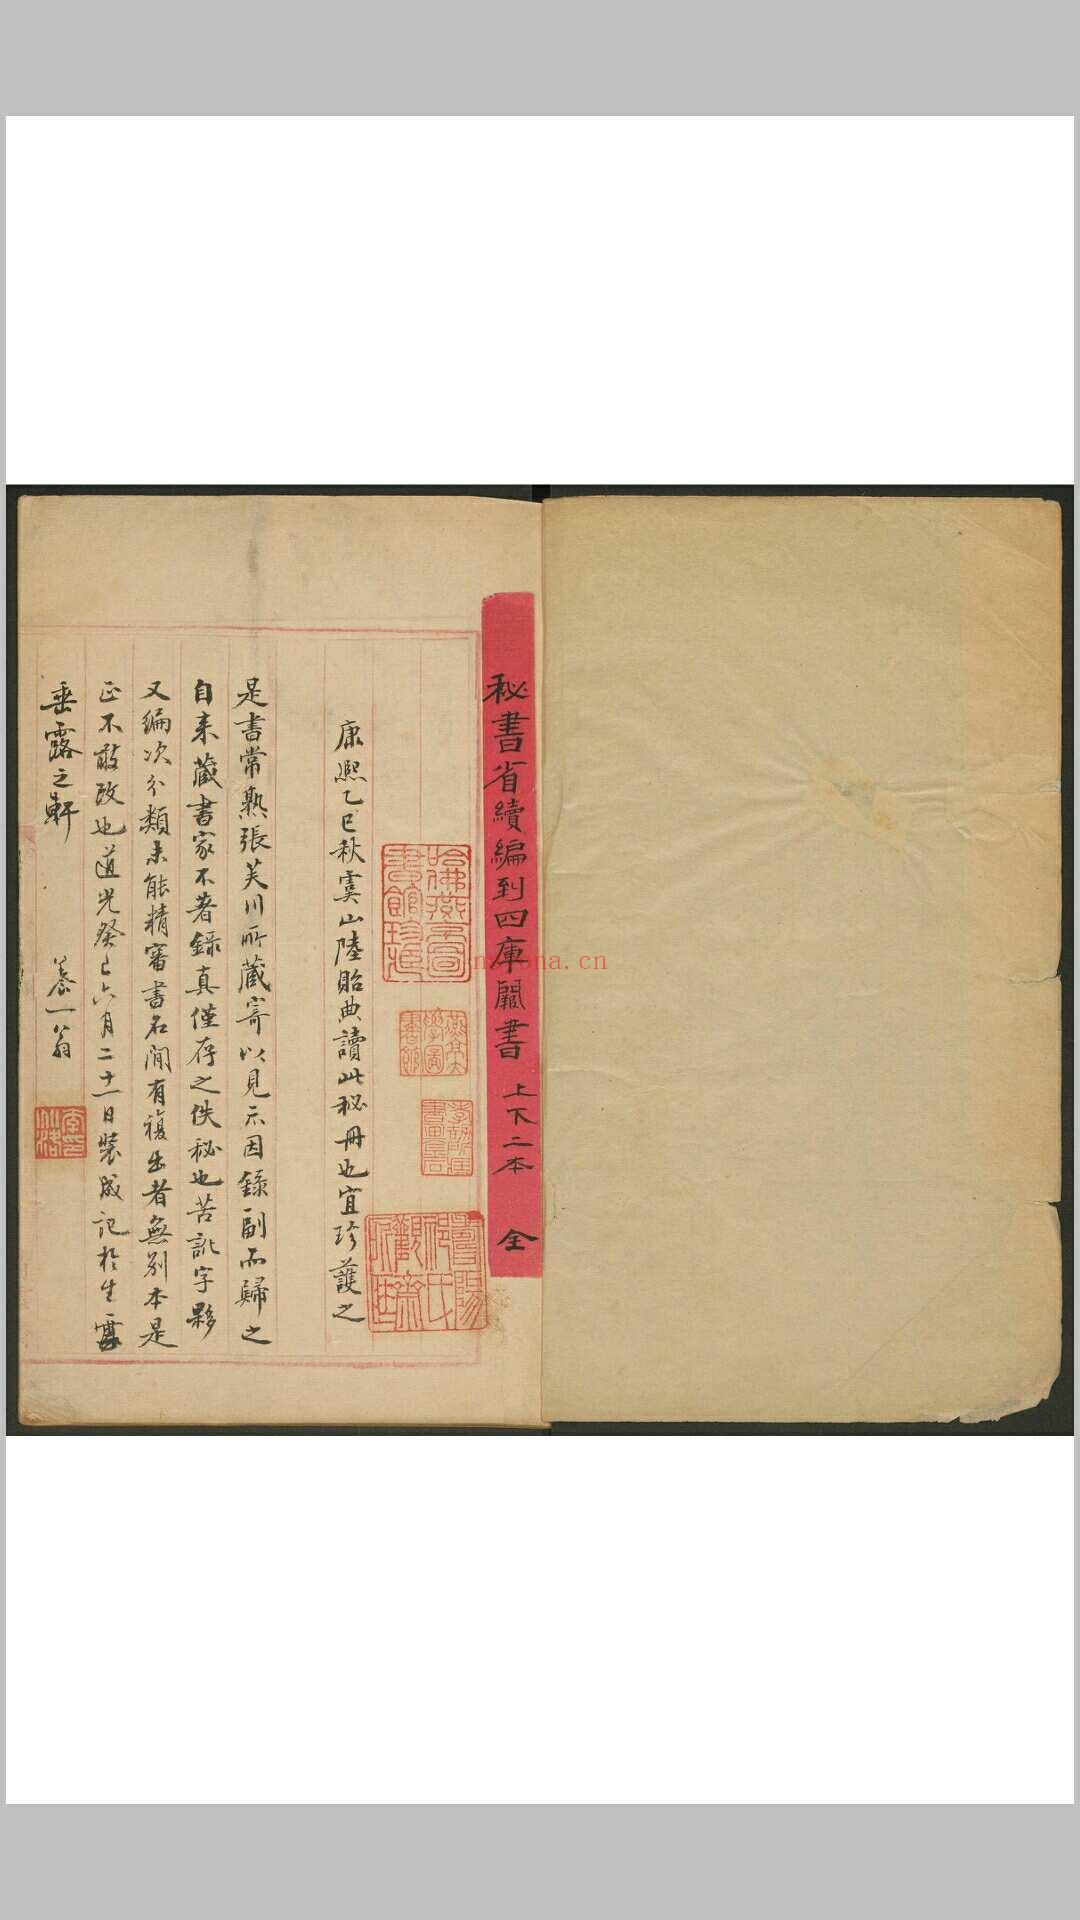 秘書省續編到四庫闕書 上下二本 全
康熙乙巳秋虞山陸貽典讀此秘冊也宜珍護之
是書常熟張芙川所藏寄以見示因錄副而歸之
自来藏書家不著錄真僅存之佚秘也苦訛字夥
又編次分類未能精審書名間有複出者無別本是
正不敢改也道光癸巳六月二十一日裝成記於生雲
垂露之軒 養一翁
哈佛燕京圖書館珍藏
nayona.cn